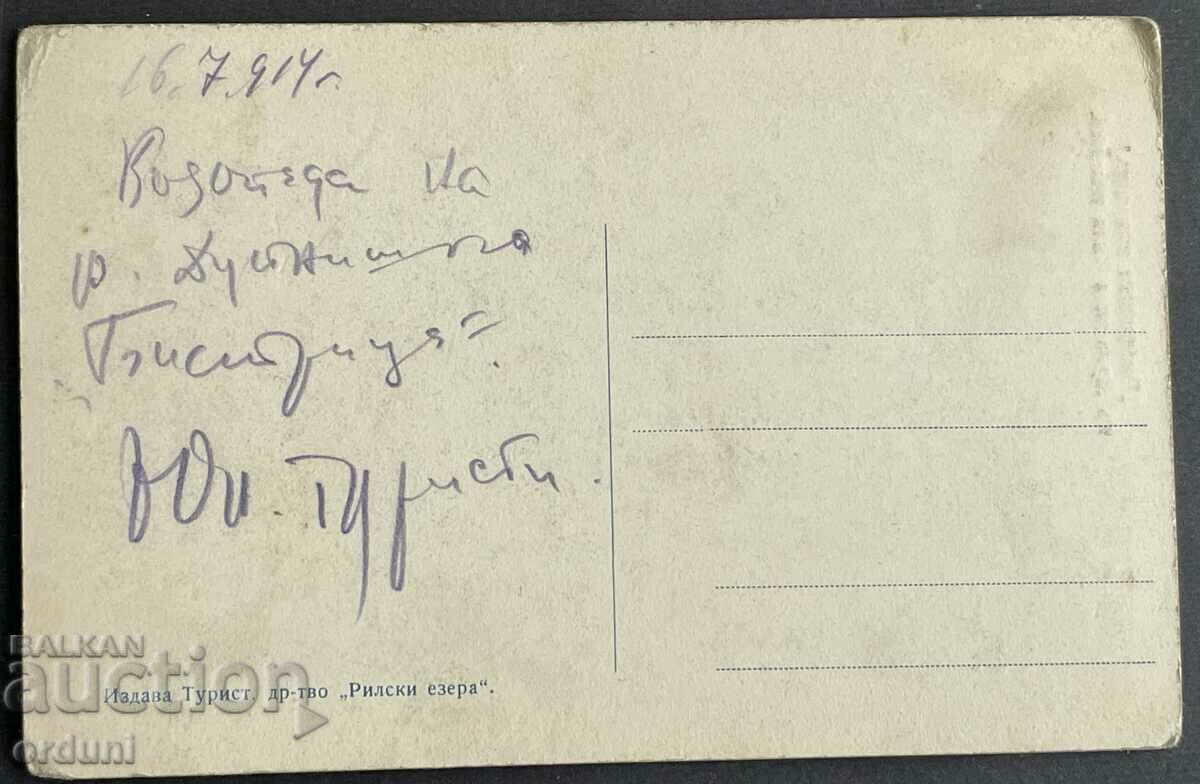 16.7.914 г.
Водопада на
р. Дупнишка
Бистрица =
Юн. туристи.
Издава Турист. др-тво „Рилски езера“.
BALKAN
auction
orduni